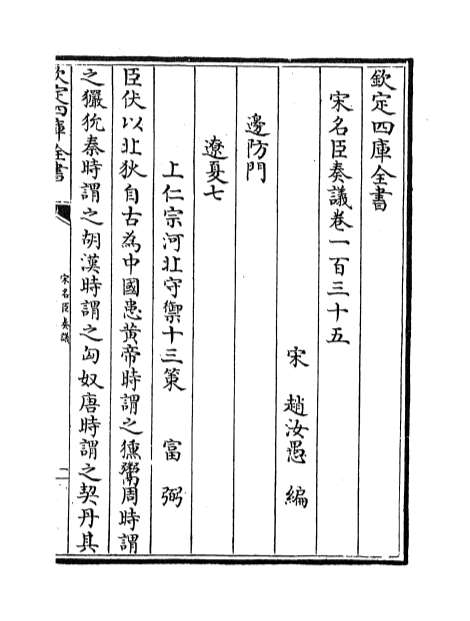 欽定四庫全書
宋名臣奏議卷一百三十五
宋 趙汝愚 編
邊防門
遼夏七
上仁宗河北守禦十三策 富弼
臣伏以北狄自古為中國患黃帝時謂之獯鬻周時謂
之玁狁秦時謂之胡漢時謂之匈奴唐時謂之契丹其
欽定四庫全書
宋名臣奏議